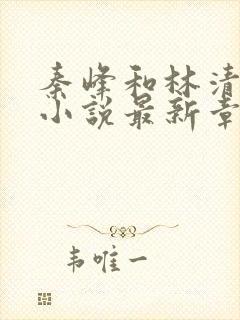 秦峰和林清
小説最新章
韦唯一